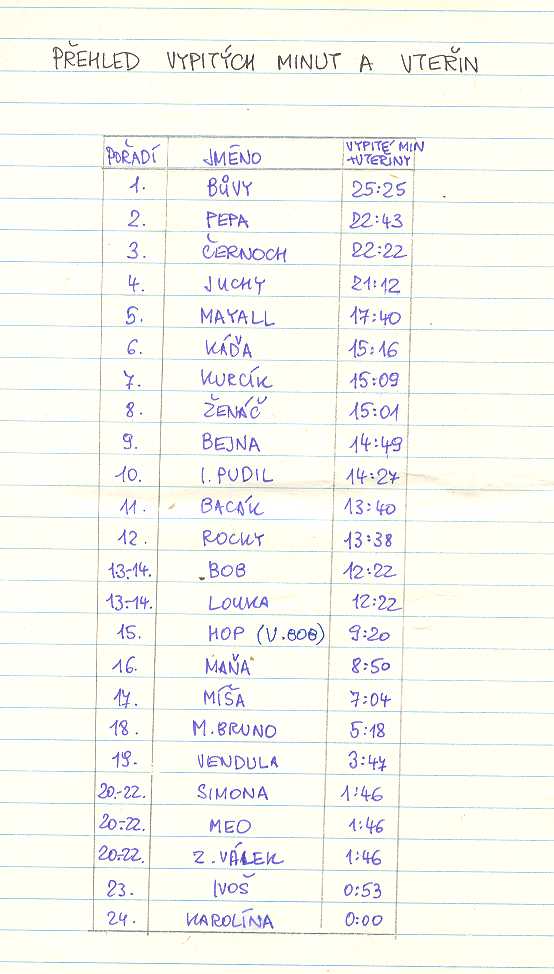 PŘEHLED VYPITÝCH MINUT A VTEŘIN
POŘADÍ JMÉNO VYPITÉ MIN
+VTEŘINY
1. BŮVY 25:25
2. PEPA 22:43
3. ČERNOCH 22:22
4. JUCHY 21:12
5. MAYALL 17:40
6. KÁĎA 15:16
7. KURCÍK 15:09
8. ŽENÁČ 15:01
9. BEJNA 14:49
10. I. PUDIL 14:27
11. BACÁK 13:40
12. ROCKY 13:38
13.-14. BOB 12:22
13.-14. LOUKA 12:22
15. HOP (V. BOB) 9:20
16. MAŇA 8:50
17. MÍŠA 7:04
18. M. BRUNO 5:18
19. VENDULA 3:47
20.-22. SIMONA 1:46
20.-22. MEO 1:46
20.-22. Z. VÁLEK 1:46
23. IVOŠ 0:53
24. KAROLÍNA 0:00